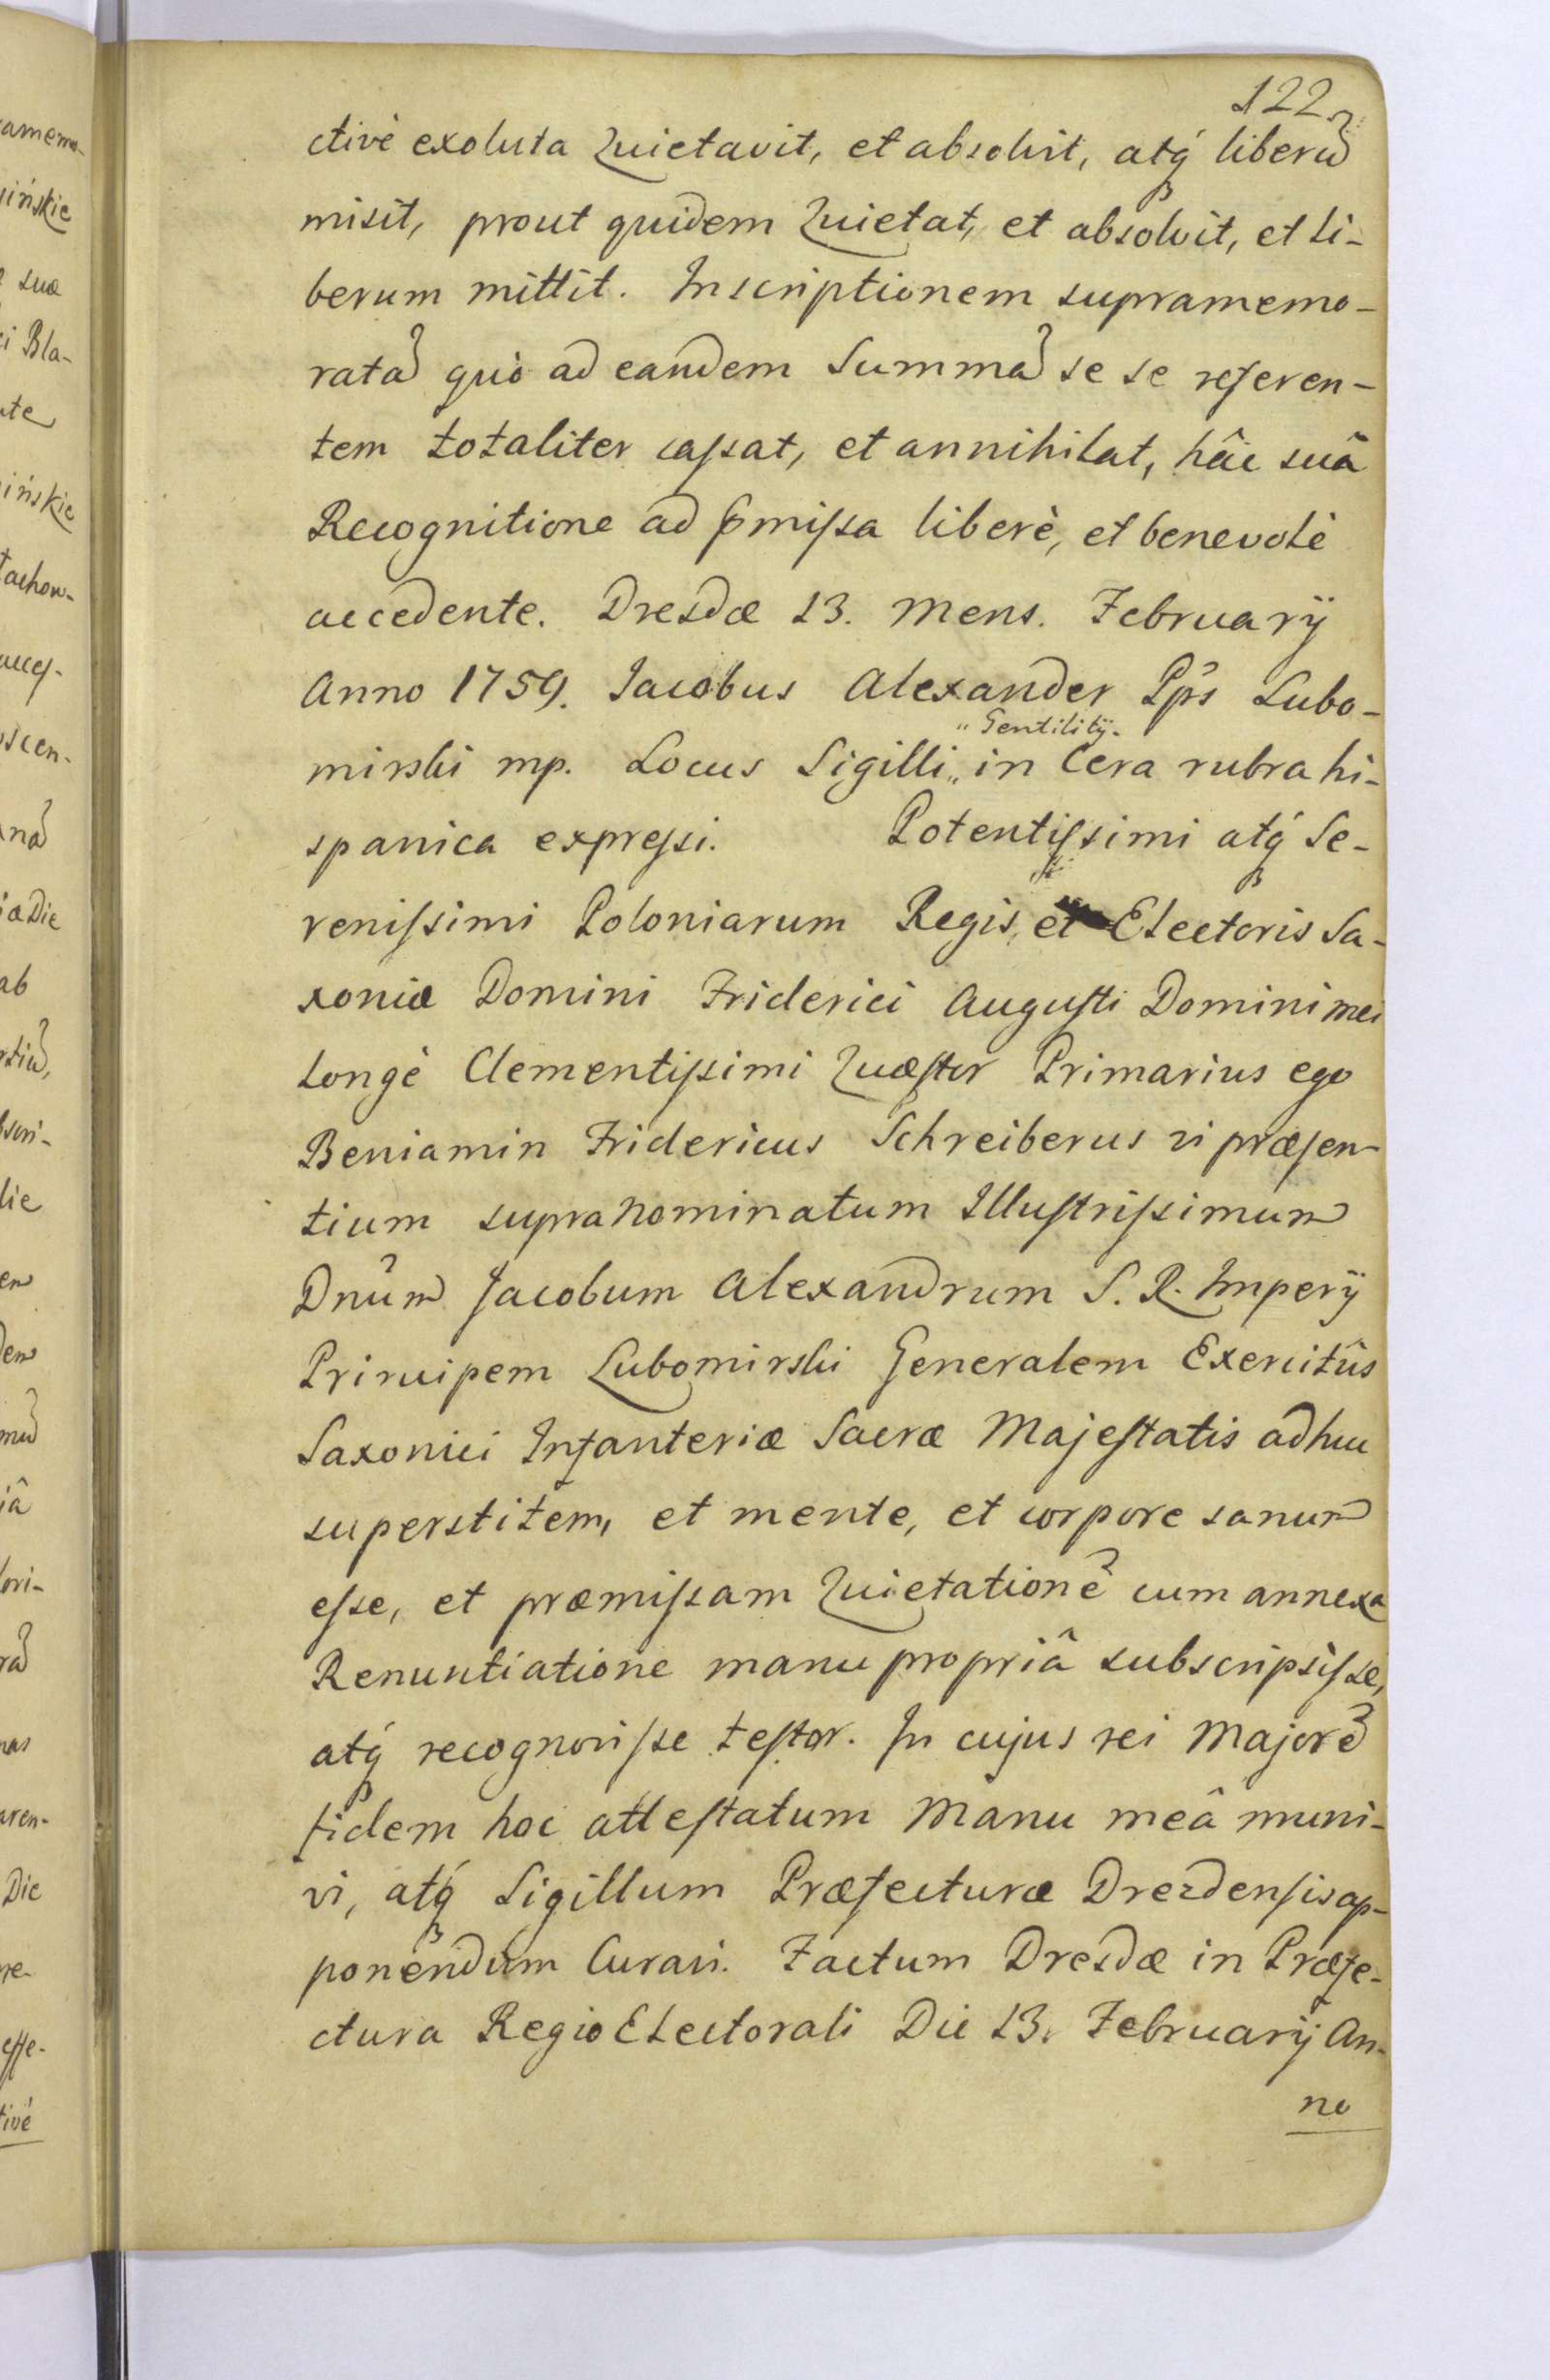 122
ctivè exoluta Quietavit, et absolvit, atq́ꝫ liberũ
misit, prout quidem Quietat, et absolvit, et li-
berum mittit. Inscriptionem supramemo-
ratã quò ad eandem Summã se se referen-
tem totaliter caſsat, et annihilat, hâc suâ
Recognitione ad p̃miſsa liberè, et benevolè
accedente. Dresdæ 13. Mens. Februarÿ
Anno 1759. Jacobus Alexander Pp̃s Lubo-
„ Gentilitÿ.
mirski mp. Locus Sigilli„ in Cera rubra hi-
spanica expreſsi. Potentiſsimi atq́ꝫ Se-
reniſsimi Poloniarum Regis, et Electoris Sa-
xoniæ Domini Friderici Auguſti Domini mei
Longè Clementiſsimi Quæſtor Primarius ego
Beniamin Fridericus Schreiberus vi præſen-
tium supranominatum Illuſtriſsimum
Dnũm Jacobum Alexandrum S. R. Imperÿ
Principem Lubomirski Generalem Exercitûs
Saxonici Infanteriæ Sacræ Majeſtatis adhuc
superstitem, et mente, et corpore sanum
eſse, et præmiſsam Quietationẽ cum annexa
Renuntiatione manu propriâ subscripsiſse,
atq́ꝫ recognoviſse teſtor. In cujus rei Majorẽ
fidem hoc atteſtatum Manu meâ muni-
vi, atq́ꝫ Sigillum Præfecturæ Drezdenſis ap-
ponendum Curavi. Factum Dresdæ in Præfe-
ctura Regio Electorali Die 13. Februarÿ An-
no